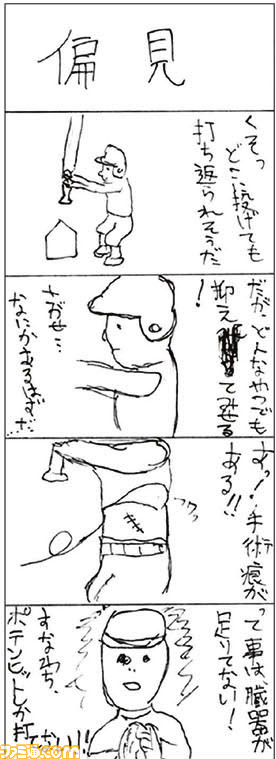 偏見
くそっ
どこに投げても
打ち返られそうだ
だがどんなやつでも
抑えて みせる
！
さがせ…
なにかあるはずだ…
むっ！手術痕が
ある!!
フワッ
って事は臓器が
足りてない！
すなわち、
ポテンヒットしか打てない!!
ファミ通.com